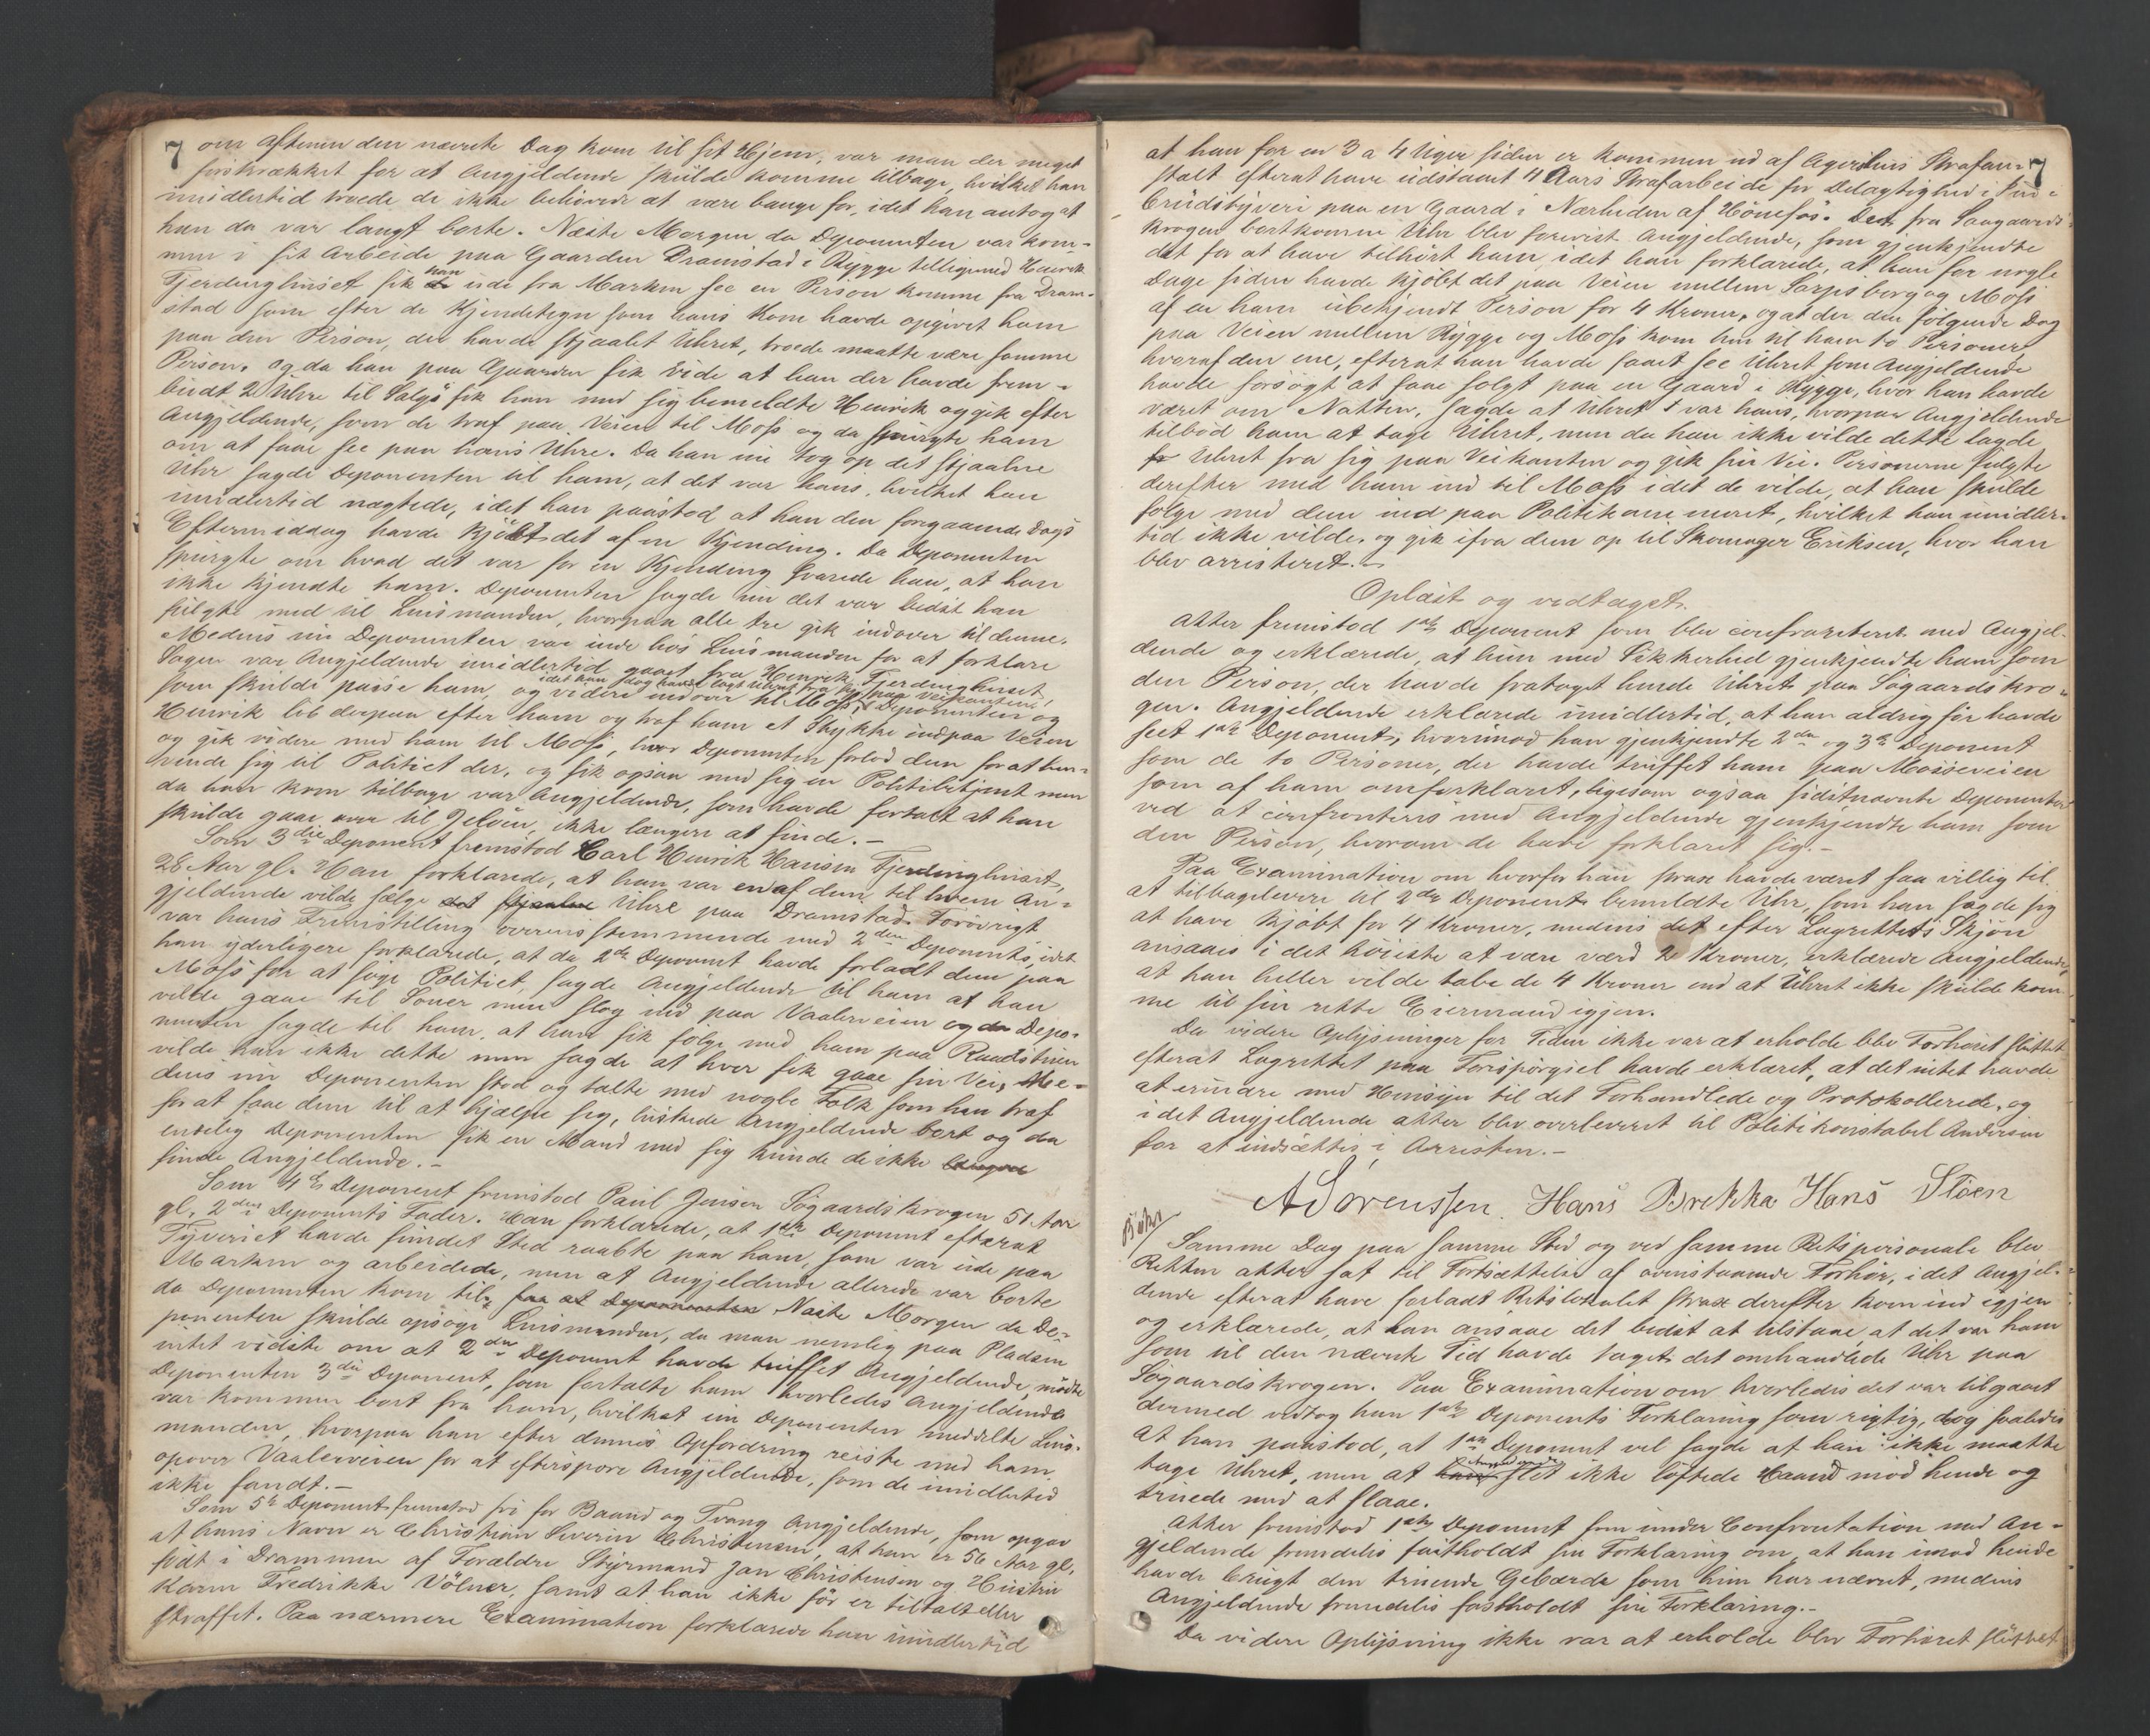 7 om Aftenen den nævnte Dag kom til sit Hjem, var man der meget
forskrækket for at Angjeldende skulde komme tilbage, hvilket han
imidlertid troede de ikke behøvede at være bange for, idet han antog at
han da var langt borte. Næste Morgen da Deponenten var kom-
men i sit Arbeide paa Gaarden Dramstad i Rygge tilligemed Henrik
Fjerdinghuset fik han ude fra Marken see en Person komme fra Dram-
stad som efter de Kjendetegn som hans Kone havde opgivet ham
paa den Person, der havde stjaalet Uhret, troede maatte være samme
Person, og da han paa Gaarden fik vide at han der havde frem-
budt 2 Uhre til Salgs fik han med sig bemeldte Henrik og gik efter
Angjeldende, som de traf paa Veien til Moss og da spurgte ham
om at faae see paa hans Uhre. Da han nu tog op det stjaalne
Uhr sagde Deponenten til ham, at det var hans, hvilket han
imidlertid nægtede, idet han paastod at han den foregaaende Dags
Eftermiddag havde kjøbt det af en Kjending. Da Deponenten
spurgte om hvad det var for en Kjending svarede han, at han
ikke kjendte ham. Deponenten sagde nu det var bedst han
fulgte med til Lensmanden, hvorpaa alle tre gik indover til denne.
Medens nu Deponenten var inde hos Lensmanden for at forklare
Sagen var Angjeldende imidlertid gaaet fra Henrik Fjerdinghuset,
som skulde passe ham, idet han dog havde lagt Uhret fra sig paa Veikanten, og videre indover til Moss, Deponenten og
Henrik løb derpaa efter ham og traf ham et Stykke indpaa Veien
og gik videre med ham til Moss, hvor Deponenten forlod dem for at hen-
vende sig til Politiet der, og fik ogsaa med sig en Politibetjent men
da han kom tilbage var Angjeldende, som havde fortalt at han
skulde gaae over til Jeløen, ikke længere at finde.-
Som 3die Deponent fremstod Carl Henrik Hansen Fjerdinghuset,
28 Aar gl. Han forklarede, at han var en af dem til hvem An-
gjeldende vilde sælge det stjaalne Uhre paa Dramstad. Forøvrigt
var hans Fremstilling overensstemmende med 2den Deponents, idet
han yderligere forklarede, at da 2de Deponent havde forladt dem paa
Moss for at søge Politiet, sagde Angjeldende til ham at han
vilde gaae til Soner men slog ind paa Vaalerveien og da Depo-
nenten sagde til ham, at han fik følge med ham paa Raadstuen
vilde han ikke dette men sagde at hver fik gaae sin Vei, Me-
dens nu Deponenten stod og talte med nogle Folk som han traf
for at faae dem til at hjælpe sig, luskede Angjeldende bort og da
endelig Deponenten fik en Mand med sig kunde de ikke længere
finde Angjeldende.-
Som 4de Deponent fremstod Paul Jensen Søgaardskrogen 51 Aar
gl, 2den Deponents Fader. Han forklarede, at 1ste Deponent efterat
Tyveriet havde fundet Sted raabte paa ham, som var ude paa
Marken og arbeidede, men at Angjeldende allerede var borte
da Deponenten kom til, saa at Deponenten Næste Morgen da De-
ponenten skulde opsøge Lensmanden, da man nemlig paa Pladsen
intet vidste om at 2den Deponent havde truffet Angjeldende, mødte
Deponenten 3die Deponent, som fortalte ham hvorledes Angjeldende
var kommen bort fra ham, hvilket nu Deponenten meddelte Lens-
manden, hvorpaa han efter dennes Opfordring reiste med ham
opover Vaalerveien for at efterspore Angjeldende, som de imidlertid
ikke fandt.-
Som 5te Deponent fremstod fri for Baand og Tvang Angjeldende, som opgav
at hans Navn er Christian Severin Christensen, at han er 56 Aar gl,
født i Drammen af Forældre Styrmand Jan Christensen og Hustru
Karen Fredrikke Völner, samt at han ikke før er tiltalt eller
straffet. Paa nærmere Examination forklarede han imidlertid
7
at han for en 3 a 4 Uger siden er kommen ud af Agershus Strafan-
stalt efterat have udstaaet 4 Aars Strafarbeide for Delagtighed i Ind-
brudstyveri paa en Gaard i Nærheden af Hönefos. Det fra Søgaards-
krogen bortkomne Uhr blev forevist Angjeldende, som gjenkjendte
det for at have tilhørt ham, idet han forklarede, at han for nogle
Dage siden havde kjøbt det paa Veien mellem Sarpsborg og Moss
af en ham ubekjendt Person for 4 Kroner, og at der den følgende Dag
paa Veien mellem Rygge og Moss kom hen til ham to Personer
hvoraf den ene, efterat han havde faaet see Uhret som Angjeldende
havde forsøgt at faae solgt paa en Gaard i Rygge, hvor han havde
været om Natten, sagde at Uhret var hans, hvorpaa Angjeldende
tilbød ham at tage Uhret, men da han ikke vilde dette lagde
Uhret fra sig paa Veikanten og gik sin Vei. Personerne fulgte
derefter med ham ind til Moss idet de vilde, at han skulde
følge med dem ind paa Politikammeret, hvilket han imidler-
tid ikke vilde, og gik ifra dem op til Skomager Eriksen, hvor han
blev arresteret.-
Oplæst og vedtaget.
Atter fremstod 1ste Deponent som blev confronteret med Angjel-
dende og erklærede, at hun med Sikkerhed gjenkjendte ham som
den Person, der havde frataget hende Uhret paa Søgaardskro-
gen. Angjeldende erklærede imidlertid, at han aldrig før havde
seet 1ste Deponent, hvorimod han gjenkjendte 2den og 3die Deponent
som de to Personer, der havde truffet ham paa Mosseveien
som af ham omforklaret, ligesom ogsaa sidstnævnte Deponenter
ved at confronteres med Angjeldende gjenkjendte ham som
den Person, hvorom de have forklaret sig.-
Paa Examination om hvorfor han strax havde været saa villig til
at tilbagelevere til 2den Deponent bemeldte Uhr, som han sagde sig
at have kjøbt for 4 Kroner, medens det efter Lagrettets Skjøn
ansaaes i det høieste at være værd 2 Kroner, erklærede Angjeldende,
at han heller vilde tabe de 4 Kroner end at Uhret ikke skulde kom-
me til sin rette Eiermand igjen.
Da videre Oplysninger for Tiden ikke var at erholde blev Forhøret sluttet
efterat Lagrettet paa Forespørgsel havde erklæret, at det intet havde
at erindre med Hensyn til det Forhandlede og Protokollerede, og
idet Angjeldende atter blev overleveret til Politikonstabel Andersen
for at indsættes i Arresten.-
A Sörenssen. Hans Brekka Hans Støen
Samme Dag paa samme Sted og ved samme Retspersonale blev
Retten atter sat til Fortsættelse af ovenstaaende Forhør, idet Angjel-
dende efterat have forladt Retslokalet strax derefter kom ind igjen
og erklærede, at han ansaae det bedst at tilstaae, at det var ham
som til den nævnte Tid havde taget det omhandlede Uhr paa
Søgaardskrogen. Paa Examination om hvorledes det var tilgaaet
dermed vedtog han 1ste Deponents Forklaring som rigtig, dog saaledes
at han paastod, at 1ste Deponent vel sagde at han ikke maatte
tage Uhret, men at Angjeldende slet ikke løftede Haand mod hende og
truede med at slaae.
Atter fremstod 1ste Deponent som under Confrontation med An-
gjeldende fremdeles fastholdt sin Forklaring om, at han imod hende
havde brugt den truende Gebærde som hun har nævnt, medens
Angjeldende fremdeles fastholdt sin Forklaring.-
Da videre Oplysning ikke var at erholde blev Forhøret sluttet